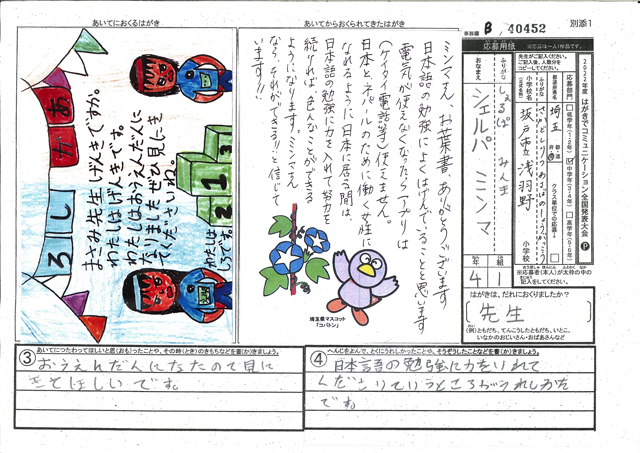 あいてにおくるはがき
あか
しろ
まさみ先生げんきですか。
わたしはげんきです。
わたしはおうえんだんに
なりましたぜひ見にき
てくださいね。
1
2
3
わたしは
しろだよ。
あいてからおくられてきたはがき
ミンマさん、お葉書、ありがとうございます
日本語の勉強によくはげんでいることと思います
電気が使えなくなったらアプリは
(ケイタイ電話等)使えません。
日本と、ネパールのために働く女性に
なれるように、日本に居る間は、
日本語の勉強に力を入れて努力を
続ければ、色んなことができる
ようになります。ミンマさん
なら、それができる!!と信じて
います!!
埼玉県マスコット
「コバトン」
事務局
B 40452
別添1
2022年度 はがきでコミュニケーション全国発表大会 P
応募用紙
※応募は一人1作品です。
先生がご記入ください。
ご記入後、人数分を
コピーしてください。
応募部門
低学年(1・2年)
中学年(3・4年)
高学年(5・6年)
都道府県名
埼玉
都 道 府 県
クラス単位での応募
ふりがな
小学校名
(正式名称)
坂戸市立浅羽野
小学校
ふりがな
しぇるぱ みんま
おなまえ
シェルパ ミンマ
年 組
4 1
※応募者(本人)が太枠の中の
記入をしてください。
はがきは、だれにおくりましたか?
先生
(例)ともだち、てんこうしたともだち、いとこ、
いなかのおじいさん・おばあさんなど
③ あいてにつたわってほしいと思(おも)ったことや、その時(とき)のきもちなどを書(か)きましょう。
おうえんだんになたので見に
きてほしいです。
④ へんじをよんで、とくにうれしかったことや、そうぞうしたことなどを書(か)きましょう。
日本語の勉強に力をいれて
です。